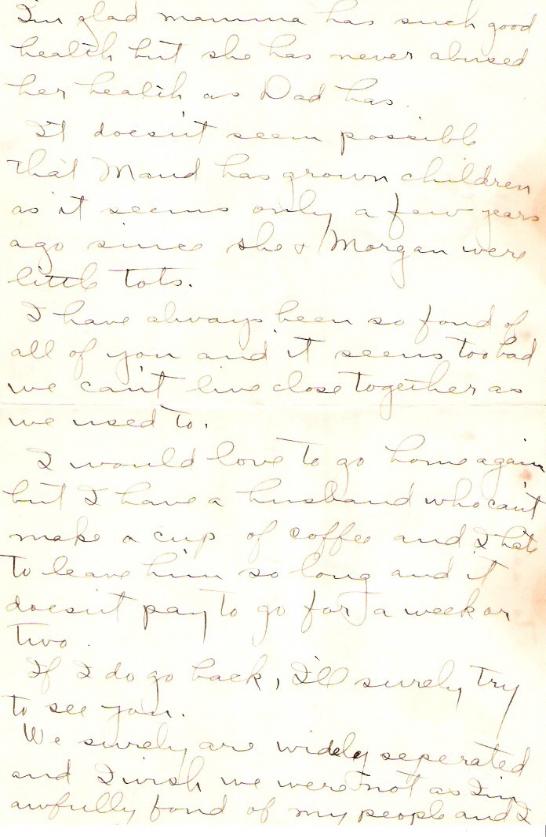 I'm glad mamma has such good
health but she has never abused
her health as Dad has.
It doesn't seem possible
that Maud has grown children
as it seems only a few years
ago since she & Morgan were
little tots.
I have always been so fond of
all of you and it seems too bad
we can't live close together as
we used to.
I would love to go home again
but I have a husband who can't
make a cup of coffee and I hate
to leave him so long and it
doesn't pay to go for a week or
two.
If I do go back, I'll surely try
to see you.
We surely are widely seperated
and I wish we were not as I'm
awfully fond of my people and I